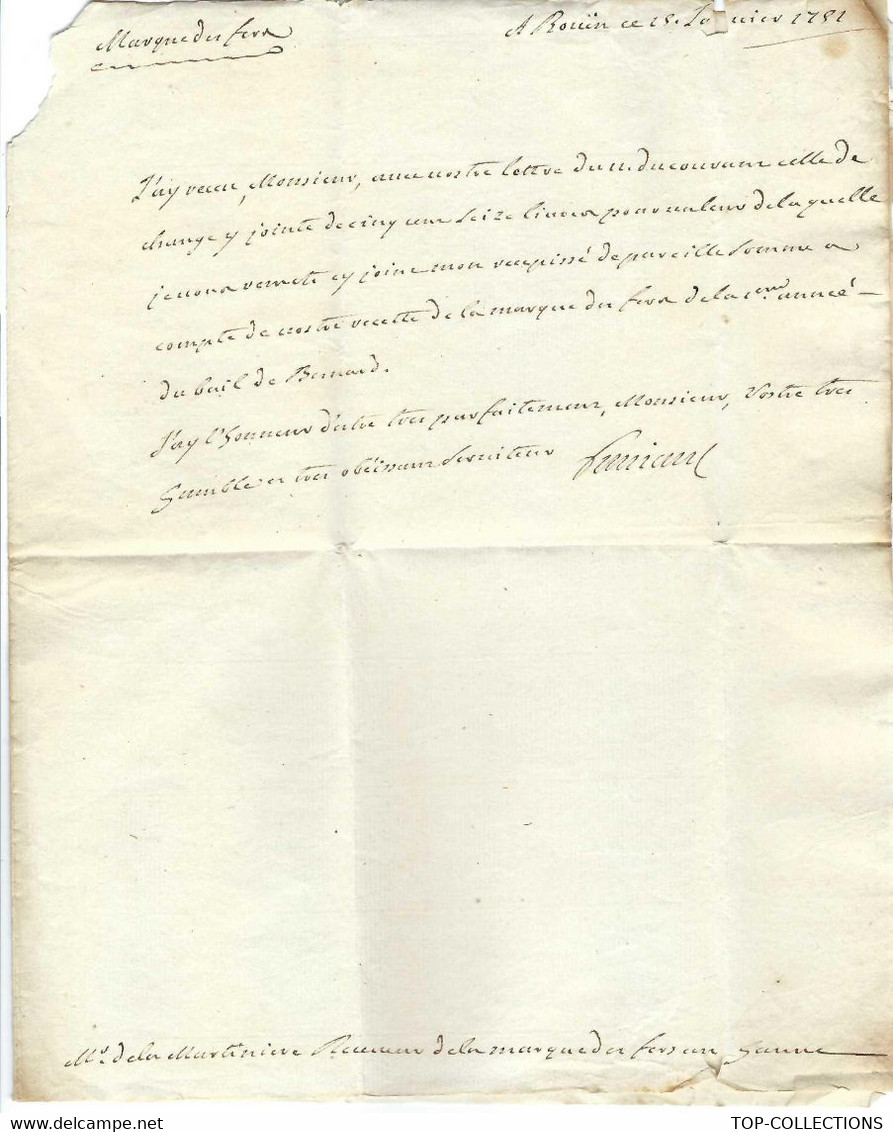 Marque des fers
A Roüen ce 15 Janvier 1751
J'ay receu, Monsieur, avec vostre lettre du 11. du courant celle de
change y jointe de cinq cent seize livres pour valeur de la quelle
je vous remets cy joint mon recepissé de pareille somme a
compte de vostre recette de la marque des fers de la 1ere. année
du bail de Bernard.
J'ay l'honneur d'etre tres parfaitement, Monsieur, Vostre tres
humble et tres obeissant serviteur
Mr. de la Martiniere Receveur de la marque des fers
TOP-COLLECTIONS